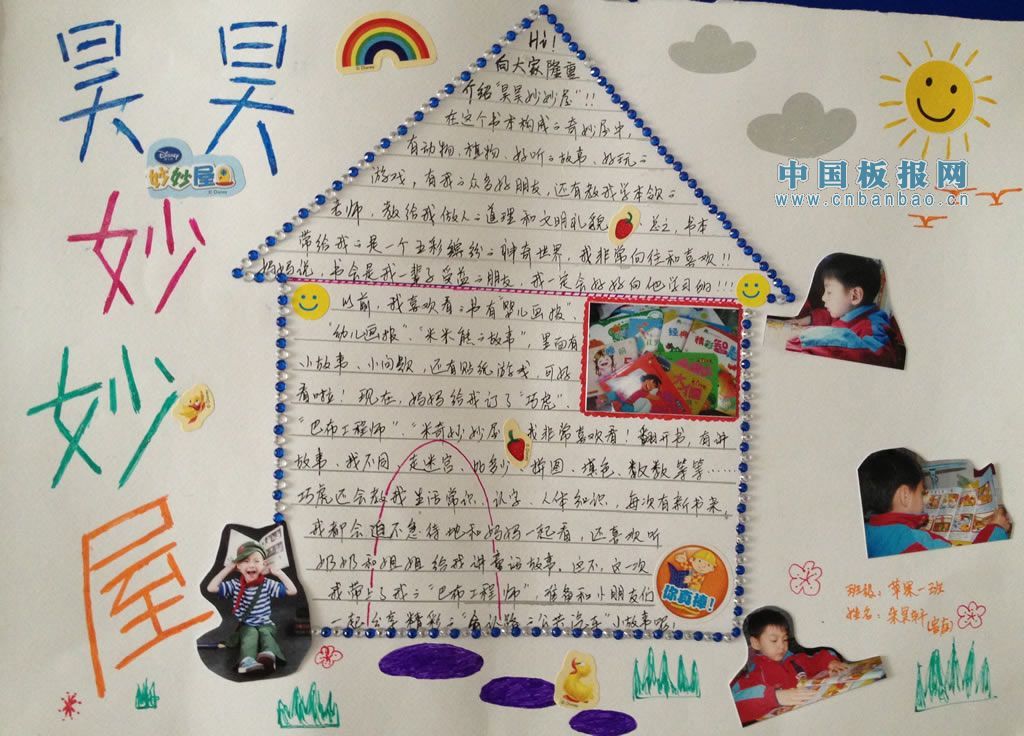 昊昊
妙
妙
屋
Disney
妙妙屋
© Disney
中国板报网
www.cnbanbao.cn
Hi!
向大家隆重
介绍"昊昊妙妙屋"!!
在这个书本构成的奇妙屋中,
有动物、植物、好听的故事、好玩的
游戏,有我的众多好朋友,还有教我学本领的
老师,教给我做人的道理和文明礼貌。总之,书本
带给我的是一个五彩缤纷的神奇世界,我非常向往和喜欢!!
妈妈说,书会是我一辈子受益的朋友,我一定会好好向他学习的!!!
以前,我喜欢看的书有"婴儿画报"、
"幼儿画报"、"米米熊的故事",里面有
小故事、小问题,还有贴纸游戏,可好
看啦!现在,妈妈给我订了"巧虎"、
"巴布工程师"、"米奇妙妙屋 我非常喜欢看!翻开书,有讲
故事、找不同、走迷宫、比多少、拼图、填色、数数等等……
巧虎还会教我生活常识、认字、人体知识,每次有新书来,
我都会迫不急待地和妈妈一起看,还喜欢听
奶奶和姐姐给我讲童话故事。这不,这一次
我带上了我的"巴布工程师",准备和小朋友们
一起分享精彩的"会认路的公共汽车"小故事呢!
你真棒!
班级:苹果一班
姓名:朱昊轩